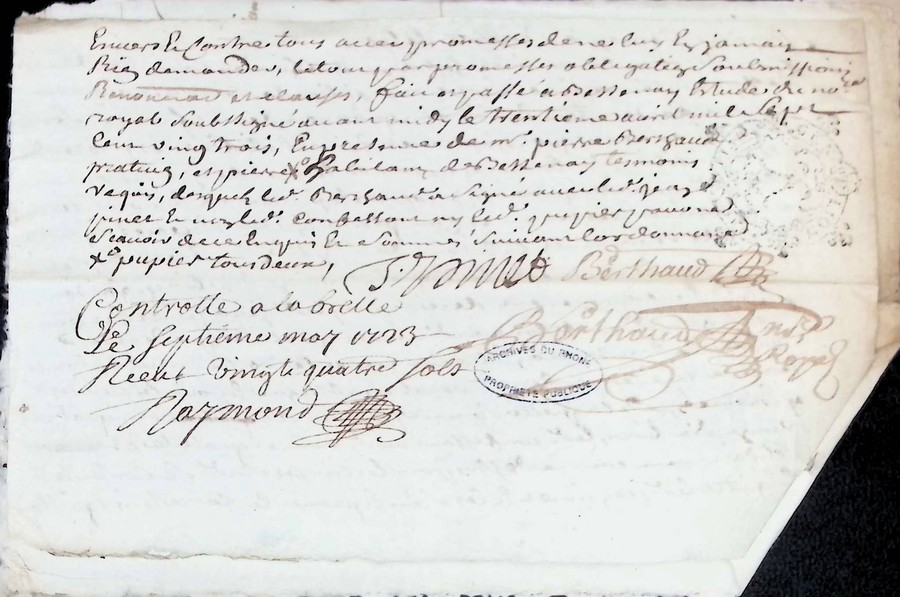 Envers Et Contre tous avec promesses de ne luy En jamais
Rien demander, le tout par promesses obligations Soubmissions
Renon[...] et clauses, fait et passé a Bessenay Estude du no.re
royal Soubsigné avant midy le trentieme avril mil Sept
Cent vingt trois, En presence de m.e pierre Berthaud
praticien, et pierre habitant de Bessenay temoins
requis, desquels led. Berthaud a signé avec led.
pinet Et non led. Confessant ny led. papier pour ne
Scavoir de ce Enquis Et Sommés suivant Lordonnance
papier tous deux,
J. Pinet Berthaud
Controlle a la brelle
Le Septième may 1723
Receu vingt quatre Sols
Raymond
Berthaud no.re Royal
ARCHIVES DU RHONE
PROPRIÉTÉ PUBLIQUE